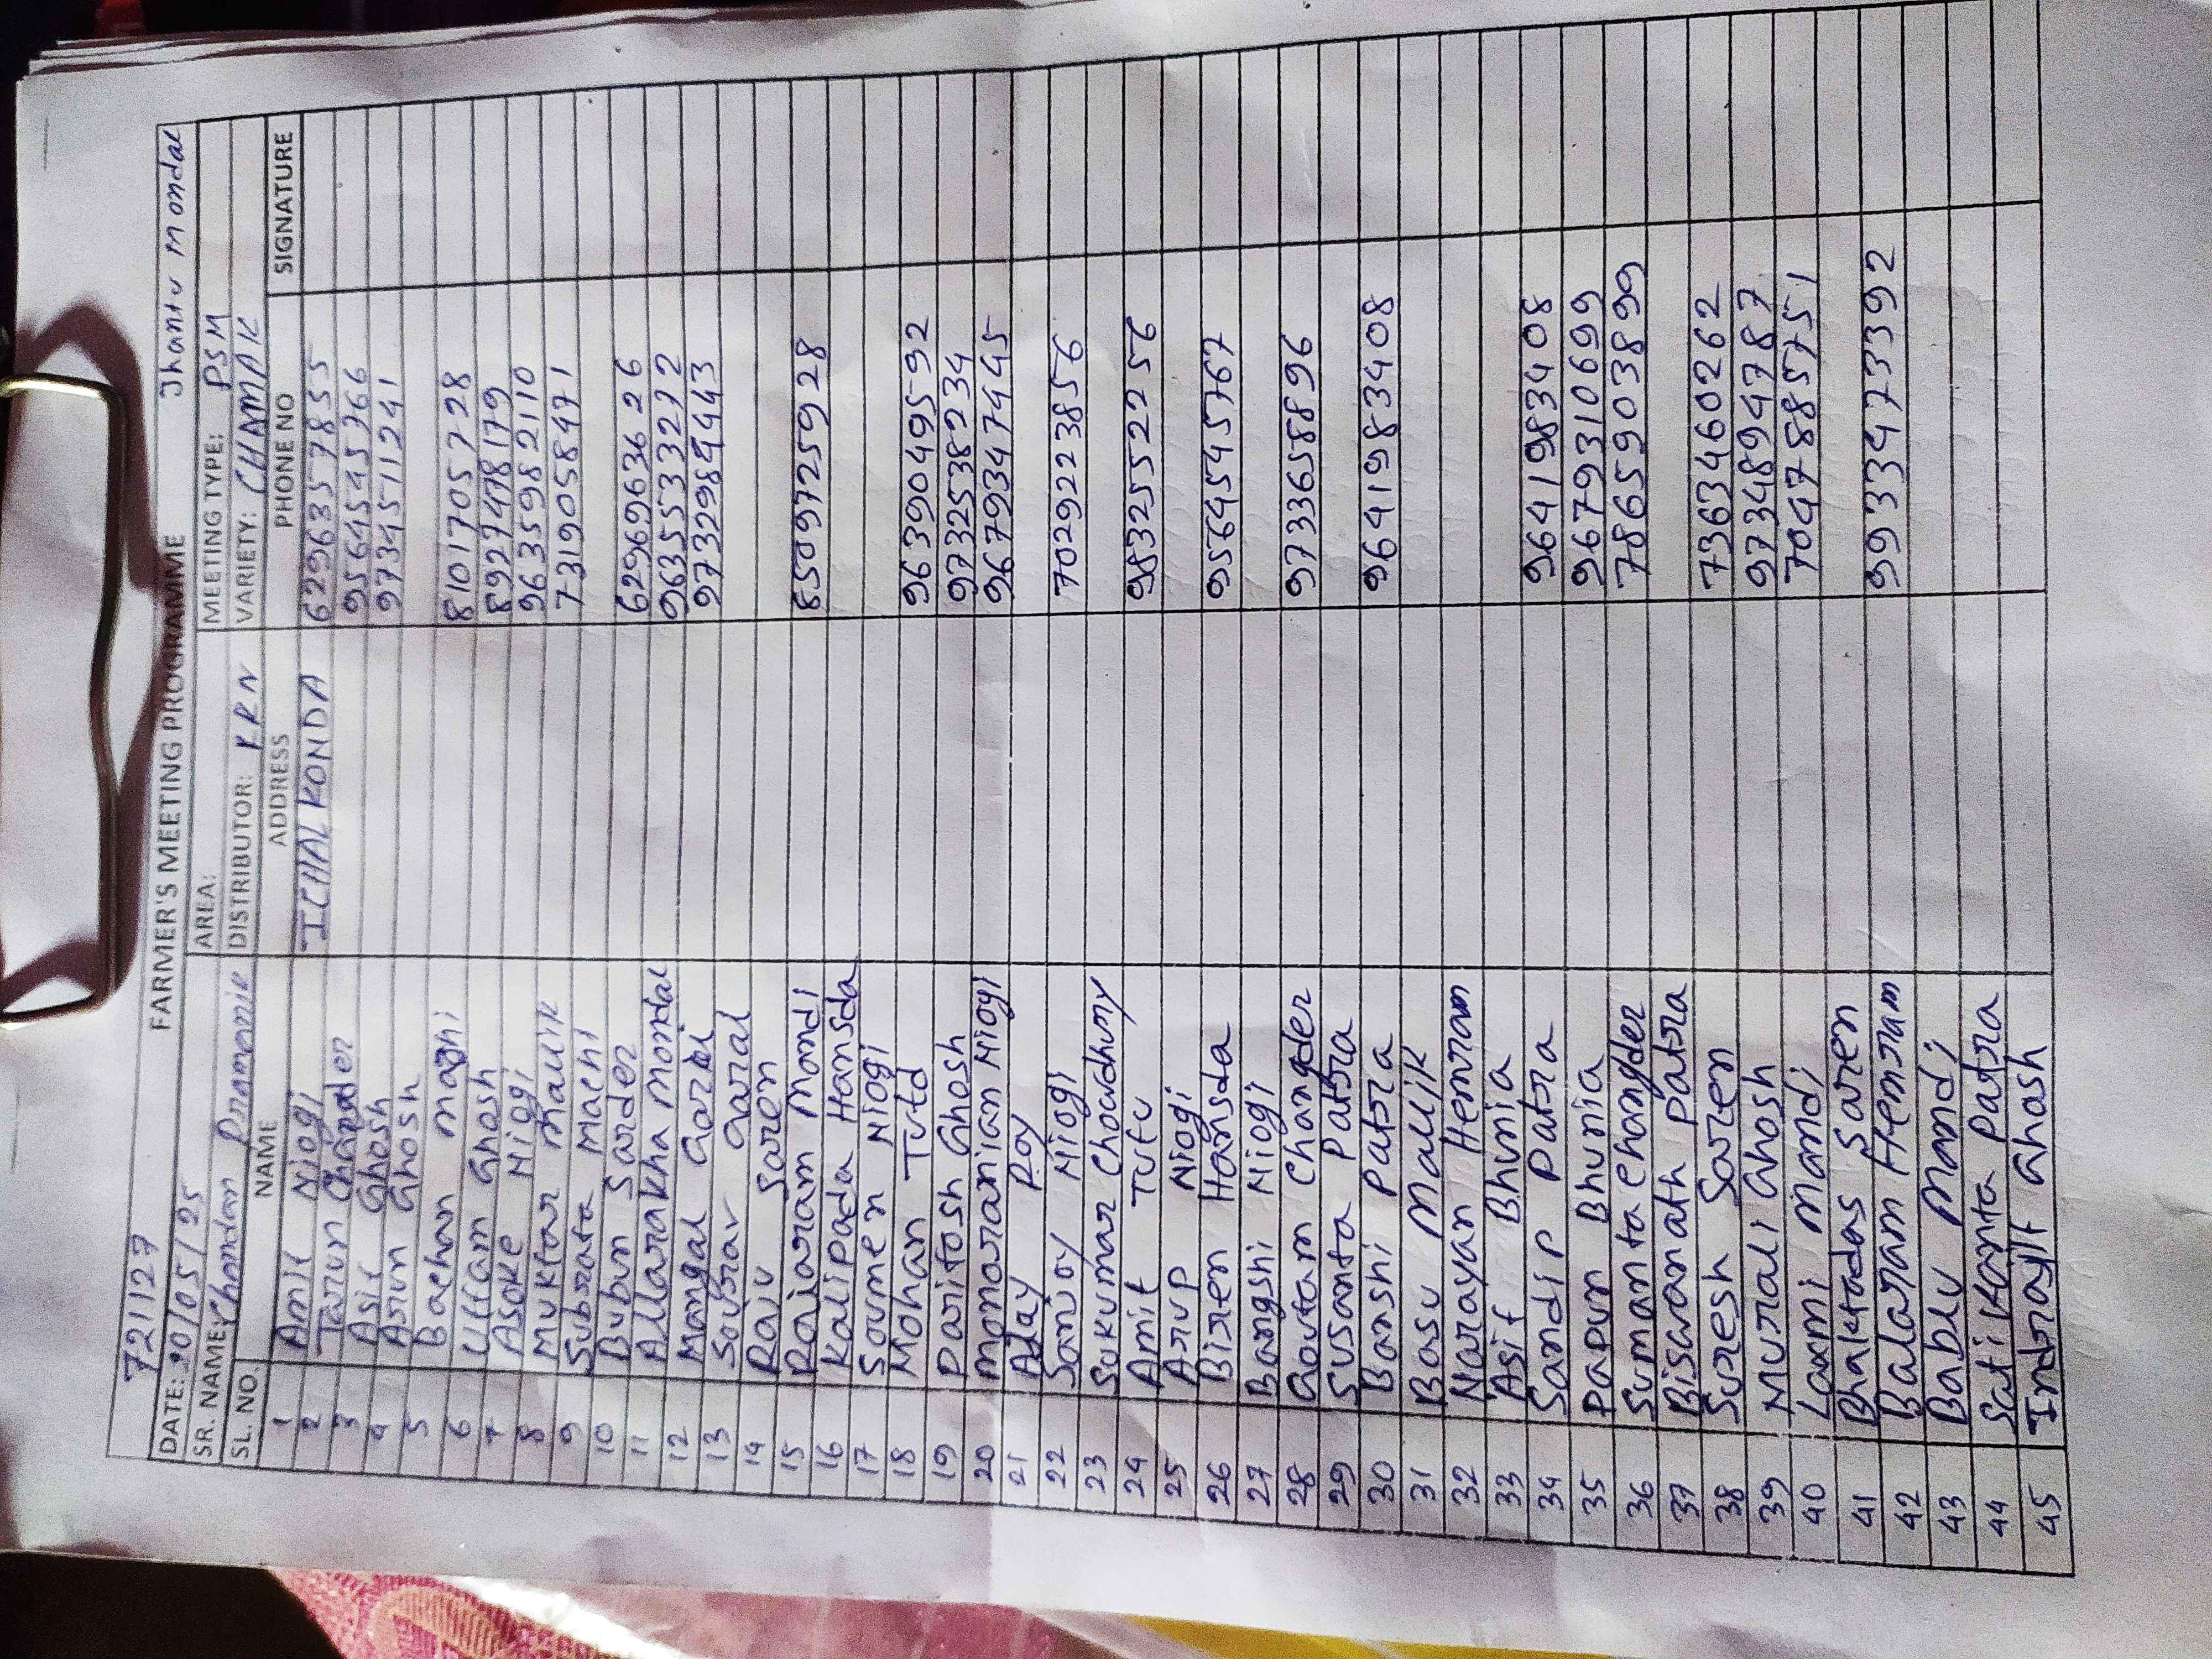 721127
FARMER'S MEETING PROGRAMME Jhantu Mondal
DATE: 20/05/25 AREA: MEETING TYPE: PSM
SR. NAME: Chandan Pramanik DISTRIBUTOR: KRN VARIETY: CHAMAK
SL. NO. NAME ADDRESS PHONE NO SIGNATURE
1 Amit Niogi ICHALKONDA 6296357855
2 Tarun Chander 9564545766
3 Asit Ghosh 9734511241
4 Arun Ghosh
5 Bachan Maghi 8101705728
6 Uttam Ghosh 8927478179
7 Asoke Niogi 9635982110
8 Muktar Mallik 7319058471
9 Subrata Machi
10 Bubun Sarder 6296963626
11 Allarakha Mondal 9635533212
12 Mangal Garai 9732984443
13 Sourav Garal
14 Raju Saren
15 Rajaram Mandi 8509725928
16 Kalipada Hansda
17 Soumen Niogi
18 Mohan Tutd 9639049592
19 Paritosh Ghosh 9732538234
20 Monoranjan Niogi 9679347445
21 Ajay Roy
22 Sanjoy Niogi 7029223856
23 Sukumar Chowdhury
24 Amit Tufu 9832552256
25 Arup Niogi
26 Biren Hansda 9564545767
27 Bangshi Niogi
28 Goutam Changder 9733658896
29 Susanta Patra
30 Banshi Patra 9641983408
31 Basu Mallik
32 Narayan Hemram
33 Asit Bhunia
34 Sandip Patra 9641983408
35 Papun Bhunia 9679310699
36 Sumanta Changder 7865903899
37 Biswanath Patra
38 Suresh Saren 7363460262
39 Murali Ghosh 9734894787
40 Laxmi Mandi 7047885751
41 Bhaktadas Saren
42 Balaram Hemram 9933473392
43 Bablu Mandi
44 Satikanta Patra
45 Indrajit Ghosh